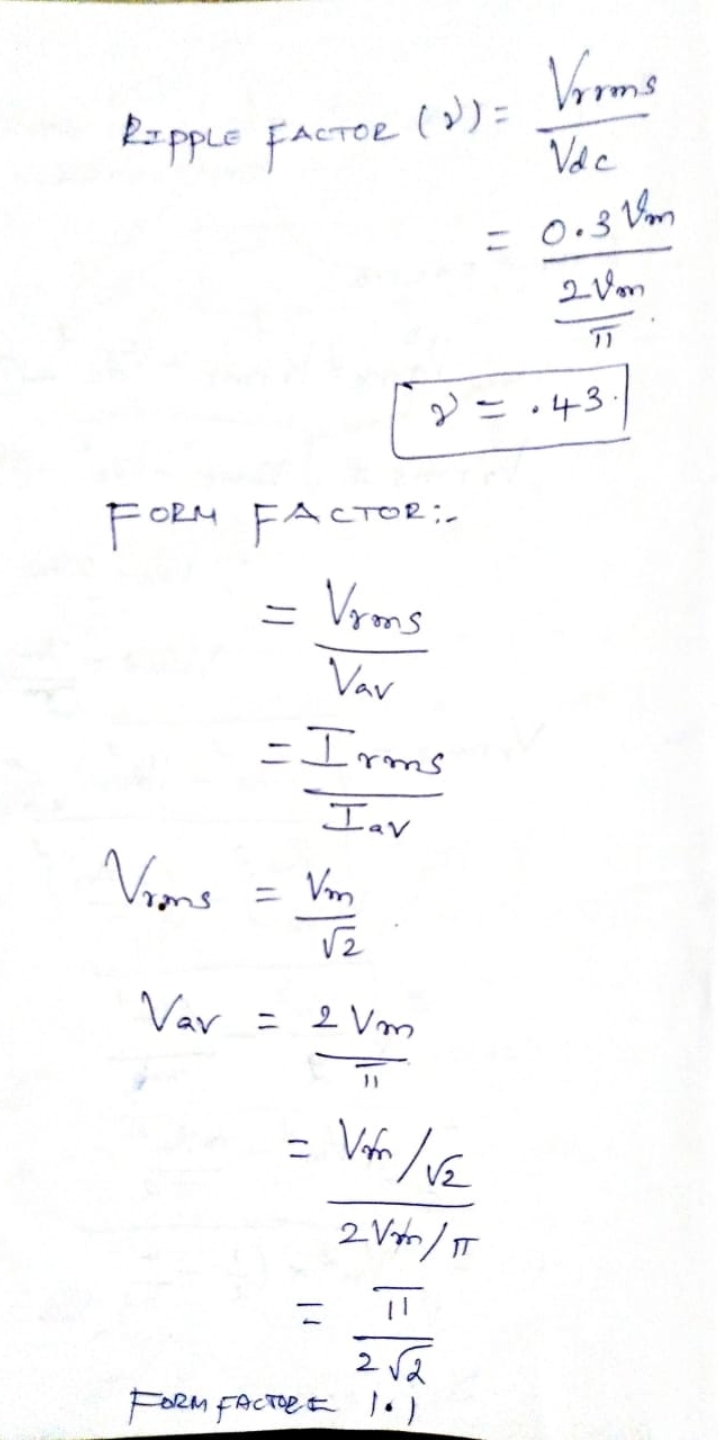 RIPPLE FACTOR (γ) = Vrrms / Vdc
= 0.3 Vm / (2Vm / π)
γ = .43.
FORM FACTOR:-
= Vrms / Vav
= Irms / Iav
Vrms = Vm / √2
Vav = 2 Vm / π
= Vm/√2 / 2Vm/π
= π / 2√2
FORM FACTOR = 1.1